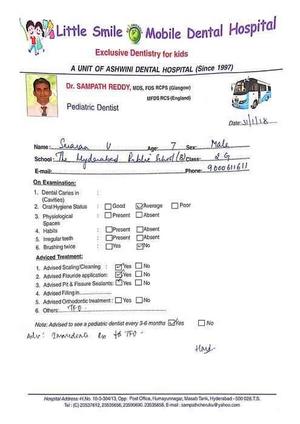 Little Smile Mobile Dental Hospital
Exclusive Dentistry for kids
A UNIT OF ASHWINI DENTAL HOSPITAL (Since 1997)
Dr. SAMPATH REDDY, MDS, FDS RCPS (Glasgow)
MFDS RCS (England)
Pediatric Dentist
Date: 31/1/18
Name: V Age: 7 Sex: Male
School: The Hyderabad Public School (B) Class: 2 G
E-mail: Phone: 9000611611
On Examination:
1. Dental Caries in :
(Cavities)
2. Oral Hygiene Status : Good Average Poor
3. Physiological : Present Absent
Spaces
4. Habits : Present Absent
5. Irregular teeth : Present Absent
6. Brushing twice : Yes No
Adviced Treatment:
1. Advised Scaling/Cleaning : Yes No
2. Advised Flouride application: Yes No
3. Advised Pit & Fissure Sealants: Yes No
4. Advised Filling in
5. Advised Orthodontic treatment : Yes No
6. Others:
Note: Advised to see a pediatric dentist every 3-6 months Yes No
Adv: for
Hospital Address: H.No. 10-3-304/13, Opp. Post Office, Humayunnagar, Masab Tank, Hyderabad - 500 028.T.S.
Tel : (C) 23537612, 23535656, 23590690. 23535658, E-mail : sampathcheruku@yahoo.com